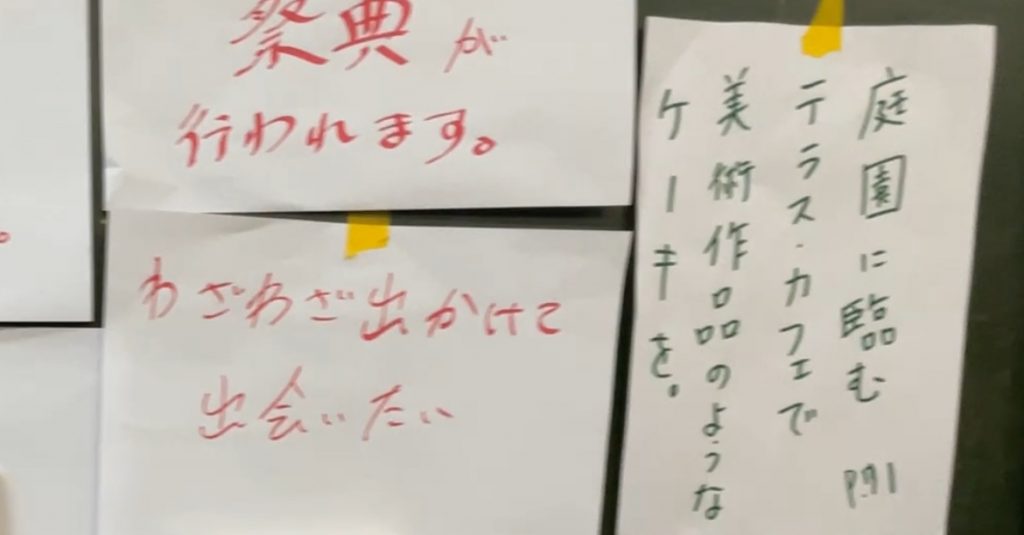 祭典が
行われます。
わざわざ出かけて
出会いたい
庭園に臨む P.91
テラス・カフェで
美術作品のような
ケーキを。